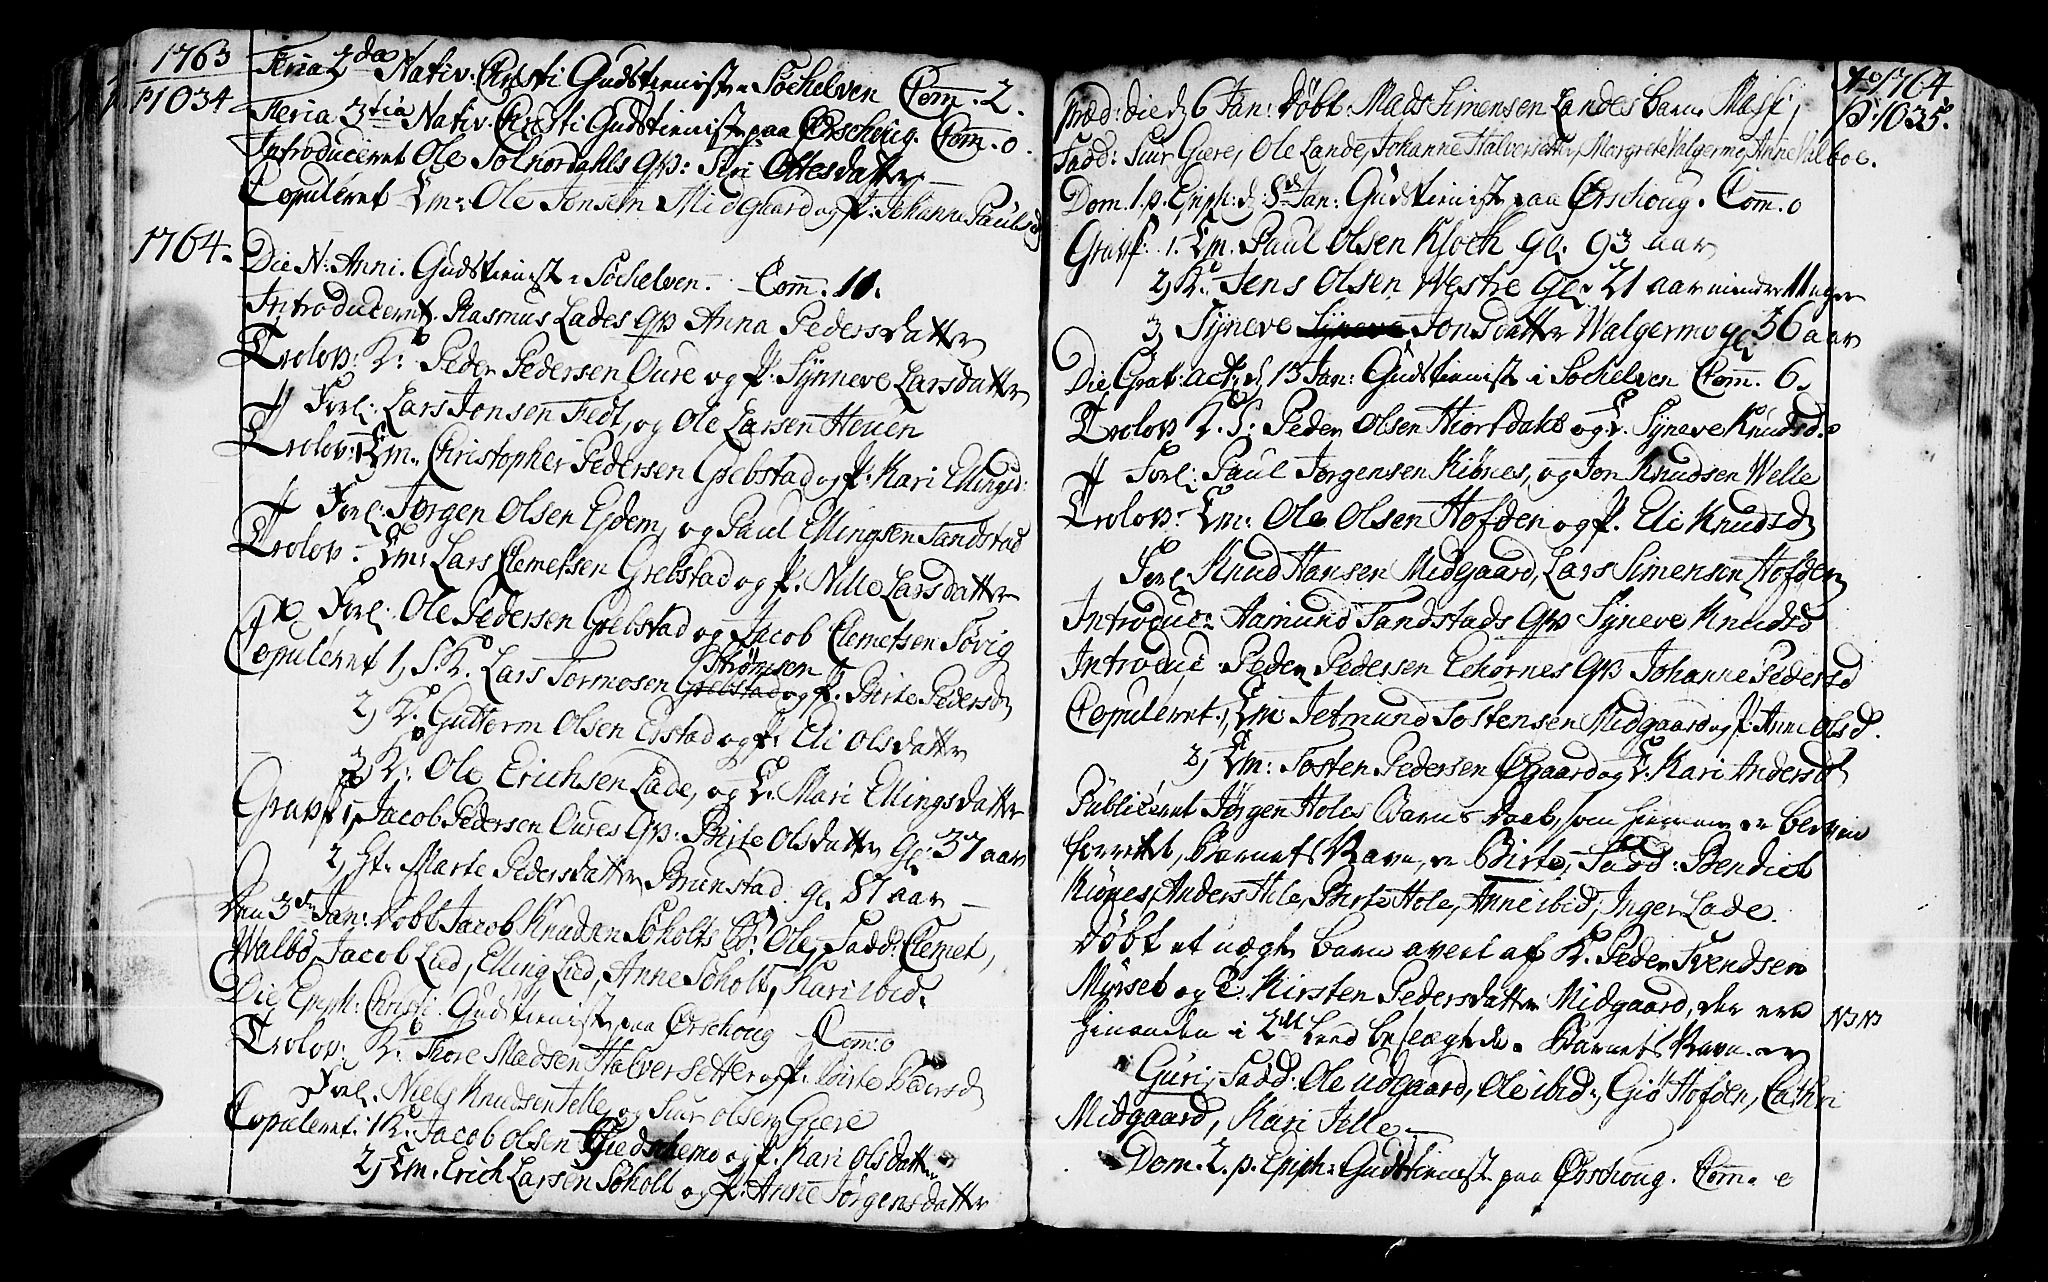 1763
p 1034
Feria 2da Nativ: Christi Gudstieniste Sochelven Com. 2.
Feria 3tia Nativ. Christi Gudstieniste paa Ørschoug. Com. 0.
Introduceret Ole Solnordahls qv: Siri Olsdatter
Copuleret Em: Ole Jonsen Midgaard og P. Johanne Paulsd
1764.
Die N: Anni. Gudstienist i Sochelven. Com. 11.
Introduceret. Rasmus Lades qv Anna Pedersdatter
Trolov: K: Peder Pedersen Oure og P. Synneve Larsdatter
Forl: Lars Jonsen Fedt, og Ole Larsen Heuen
Trolov: Em: Christopher Pedersen Grebstad og P: Kari Ellingsd:
Forl: Jørgen Olsen Eidem, og Paul Ellingsen Tandstad
Trolov: Em: Lars Clemetsen Grebstad og P. Nille Larsdatter
Forl: Ole Pedersen Grebstad og Jacob Clemetsen Sovig
Strømsen
Copuleret 1, S. K. Lars Tormosen Grebstad og P. Birte Pedersd
2, K. Guttorm Olsen Erstad og P: Eli Olsdatter
3 K: Ole Erichsen Lade, og E. Mari Ellingsdatter
Grav 1, Jacob Pedersen Oures qv: Birte Olsdatter gl: 37 aar
2, Marte Pedersdatter Brunstad. gl. 87 aar
Den 3de Jan: døbt Jacob Knudsen Søholts B: Ole, Fadd: Clemet
Walbø, Jacob Lied, Elling Lied, Anne Søholt, Kari ibid.
Die Epiph: Christi. Gudstieniste paa Ørschoug Com: 0
Trolov: K. Thore Madsen Halversetter og P. Birte Baarsd
Forl. Niels Knudsen Jelle og Siur Olsen Giære
Copuleret: 1 K: Jacob Olsen Giedschemo og P. Kari Olsdatter
2, Em. Erich Larsen Søholt og P: Anne Jørgensdatter
Ao 1764
p: 1035.
Præd: die d 6 Jan: døbt Mads Simensen Landes barn Mass;
Fadd: Siur Giære, Ole Lande, Johanne Halversetter, Margrete Valgermo, Anne Valboe.
Dom. 1. p. Epiph: d 8de Jan: Gudstienist paa Ørschoug. Com. 0
Grav: 1. Em. Paul Olsen Kloch gl. 93 aar
2, K. Jens Olsen Westre gl. 21 aar minder 11 uger
3, Syneve Syneve Jonsdatter Walgermo gl 56 aar
Die Grat: act: d 13 Jan: Gudstienist i Sochelven Com. 6.
Trolov K. S: Peder Olsen Hiortdahl og E. Syneve Knudsd.
Forl: Paul Jørgensen Kiønes, og Jon Knudsen Welle
Trolov: Em: Ole Olsen Hofden og P. Eli Knudsd
Forl Knud Hansen Midgaard, Lars Simensen Hofden
Introduc: Aamund Tandstads qv Syneve Knudsd
Introduc: Peder Pedersen Echornes qv Johanne Pedersd
Copuleret 1, Em Jetmund Tostensen Midgaard og P: Anne Olsd.
2, Em: Tosten Pedersen Øgaard og E. Kari Andersd
Publiceret Jørgen Holes Barns daab, som hiemme er bleven
forrettet, Barnets Navn er Birte, Fadd: Bendict
Kiønes, Anders Hole, Birte Hole, Anne ibid; Inger Lade.
Døbt et uægte barn avlet af K. Peder Svendsen
Mørset og P. Kirsten Pedersdatter Midgaard, der ere
hinanden i 2det Leed beslægtede. Barnets Navn er
NB NB
Guri, Fadd: Ole Udgaard, Ole ibid:, Giø Hofden, Cathri
Midgaard, Kari Jelle
Dom. 2. p. Epiph: Gudstienist paa Ørschoug. Com. 0